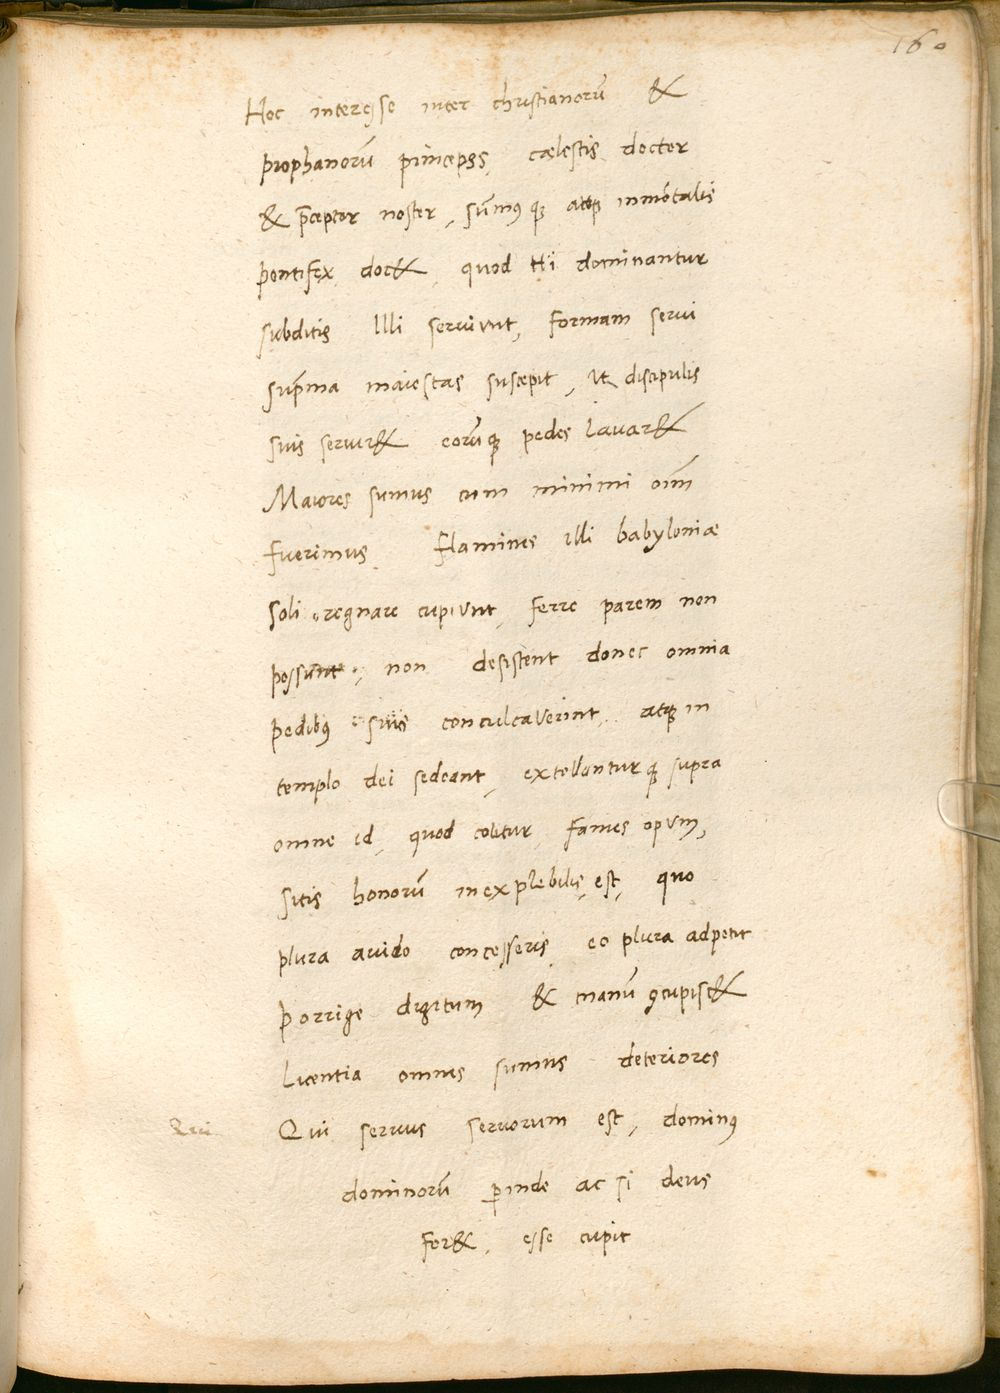 160
Hoc interesse inter christianorū &
prophanorū pimcepss, cælestis doctor
& p̄ceptor noster, sūmusq; atq; inmōtalis
pontifex doc&, quod Hi dominantur
subditis Illi serviunt, formam servi
sup̄ma maiestas suscepit, ut discipulis
suis servir& eorūq; pedes lavar&
Maiores sumus cum minimi oīm
fuerimus flamines illi babyloniæ
soli regnare cupiunt, ferre parem non
possunt, non desistent donec omnia
pedibus suis conculcaverint, atq; in
templo dei sedeant, extollanturq; supra
omne id, quod colitur, fames opum,
sitis honorū inexplebilis est, quo
plura avido concesseris eo plura adpetit
porrige digitum & manū ꝯcupisc&
Licentia omnes sumus deteriores
Qui
Qui servus servorum est, dominus
dominorū ꝑinde ac si deus
for&, esse cupit